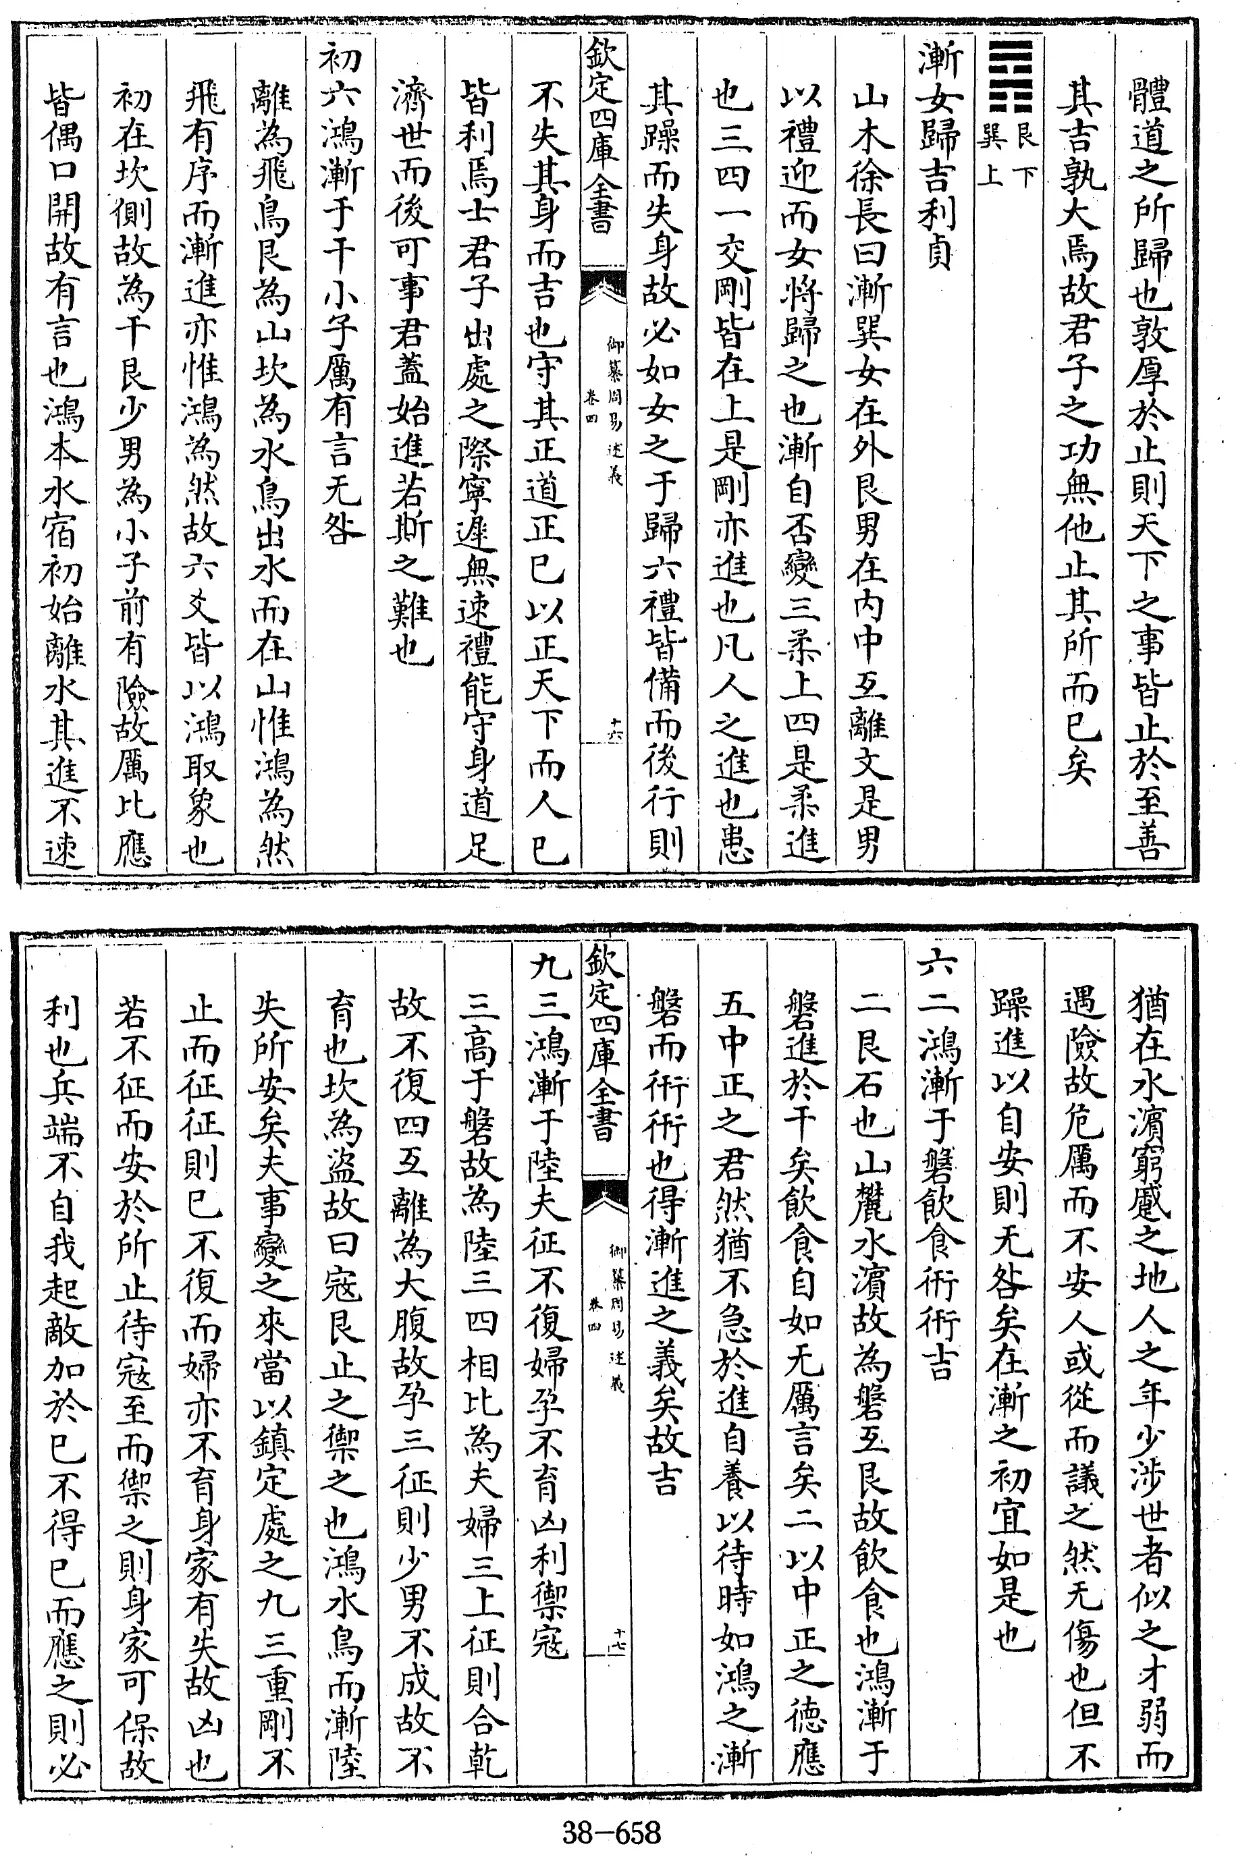 體道之所歸也敦厚於止則天下之事皆止於至善
其吉孰大焉故君子之功無他止其所而已矣
艮下
巽上
漸女歸吉利貞
山木徐長曰漸巽女在外艮男在内中互離文是男
以禮迎而女將歸之也漸自否變三柔上四是柔進
也三四一交剛皆在上是剛亦進也凡人之進也患
其躁而失身故必如女之于歸六禮皆備而後行則
欽定四庫全書
御纂周易述義
卷四
十六
不失其身而吉也守其正道正已以正天下而人已
皆利焉士君子出處之際寧遲無速禮能守身道足
濟世而後可事君蓋始進若斯之難也
初六鴻漸于干小子厲有言无咎
離為飛鳥艮為山坎為水鳥出水而在山惟鴻為然
飛有序而漸進亦惟鴻為然故六爻皆以鴻取象也
初在坎側故為干艮少男為小子前有險故厲比應
皆偶口開故有言也鴻本水宿初始離水其進不速
猶在水濵窮蹙之地人之年少涉世者似之才弱而
遇險故危厲而不安人或從而議之然无傷也但不
躁進以自安則无咎矣在漸之初宜如是也
六二鴻漸于磐飲食衎衎吉
二艮石也山麓水濵故為磐互艮故飲食也鴻漸于
磐進於干矣飲食自如无厲言矣二以中正之德應
五中正之君然猶不急於進自養以待時如鴻之漸
磐而衎衎也得漸進之義矣故吉
欽定四庫全書
御纂周易述義
卷四
十七
九三鴻漸于陸夫征不復婦孕不育凶利禦寇
三高于磐故為陸三四相比為夫婦三上征則合乾
故不復四互離為大腹故孕三征則少男不成故不
育也坎為盜故曰寇艮止之禦之也鴻水鳥而漸陸
失所安矣夫事變之來當以鎮定處之九三重剛不
止而征征則已不復而婦亦不育身家有失故凶也
若不征而安於所止待寇至而禦之則身家可保故
利也兵端不自我起敵加於已不得已而應之則必
38-658